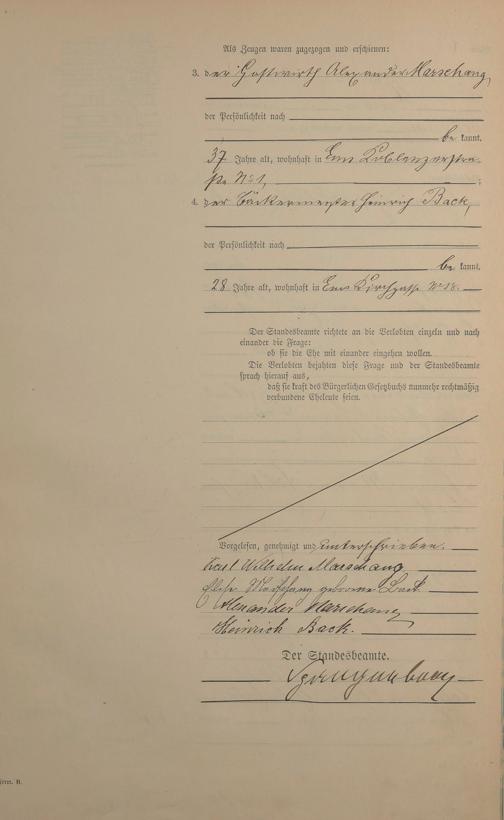 Als Zeugen waren zugezogen und erschienen:
3. der Gastwirth Alexander Marschang,
der Persönlichkeit nach
be kannt,
37 Jahre alt, wohnhaft in Ems Koblenzerstra-
ße No 1, ;
4. der Bäckermeister Heinrich Back,
der Persönlichkeit nach
be kannt,
28 Jahre alt, wohnhaft in Ems Kirchgasse No 18.
Der Standesbeamte richtete an die Verlobten einzeln und nach
einander die Frage:
ob sie die Ehe mit einander eingehen wollen.
Die Verlobten bejahten diese Frage und der Standesbeamte
sprach hierauf aus,
daß sie kraft des Bürgerlichen Gesetzbuchs nunmehr rechtmäßig
verbundene Eheleute seien.
Vorgelesen, genehmigt und unterschrieben.
Karl Wilhelm Marschang
Marschang geborene Back.
Alexander Marschang
Heinrich Back.
Der Standesbeamte.
B.